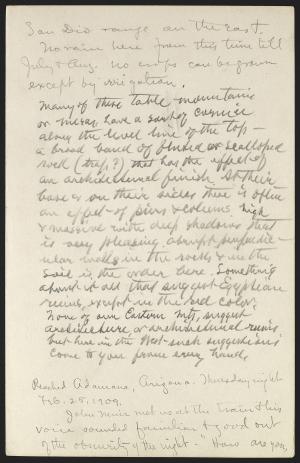 San Dio range on the East.
No rain here from this time till
July & Aug. no crops can be grown
except by irrigation.
Many of these table mountains
or mesas have a sort of cornice
along the level line of the top —
a broad band of fluted or scalloped
rock (trap?) that has the effect of
an architectural finish. At their
base & on their sides there is often
an effect of piers & colums, high
& massive with deep shadows that
is very pleasing. abrupt perpendic-
ular walls in the rocks & in the
soil is the order here. Something
about it all that suggest Egyptian
ruins, except in the red color.
None of our Eastern Mts. suggest
architecture, or architectural ruins
but here in the West such suggestions
come to you from every hand.
Reached Adamana, Arizona. Thursday night
Feb. 25, 1909.
John Muir met us at the train & his
voice sounded familiar & good out
of the obscurity of the night. - "How are you,